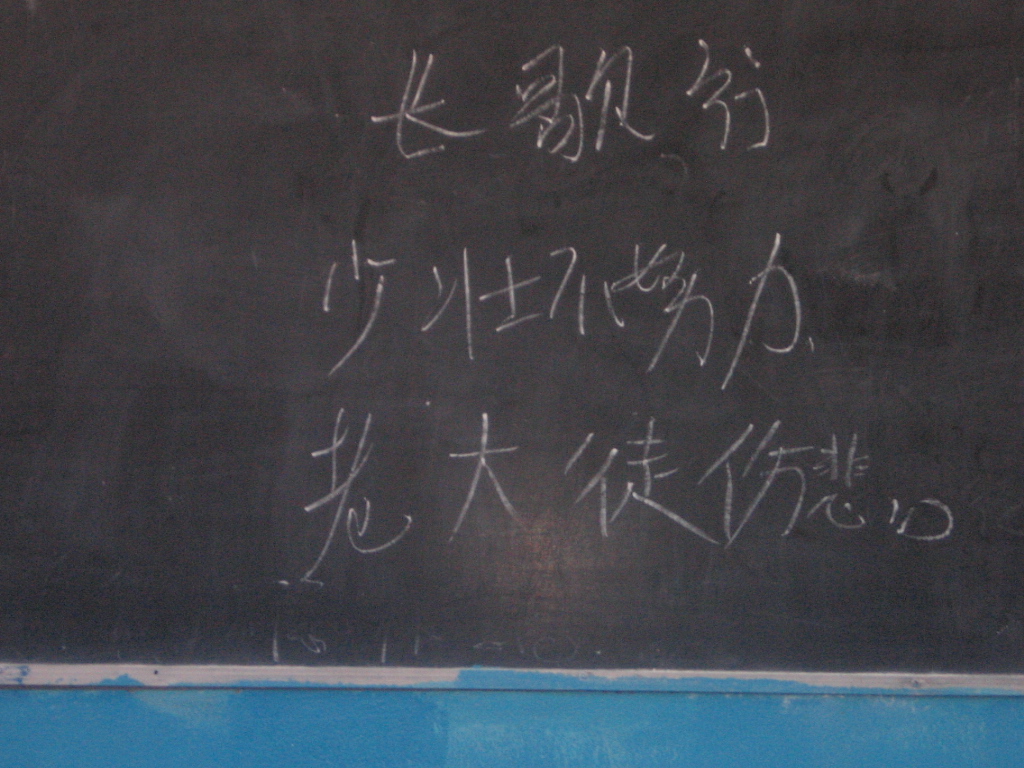 长歌行
少壮不努力,
老大徒伤悲。